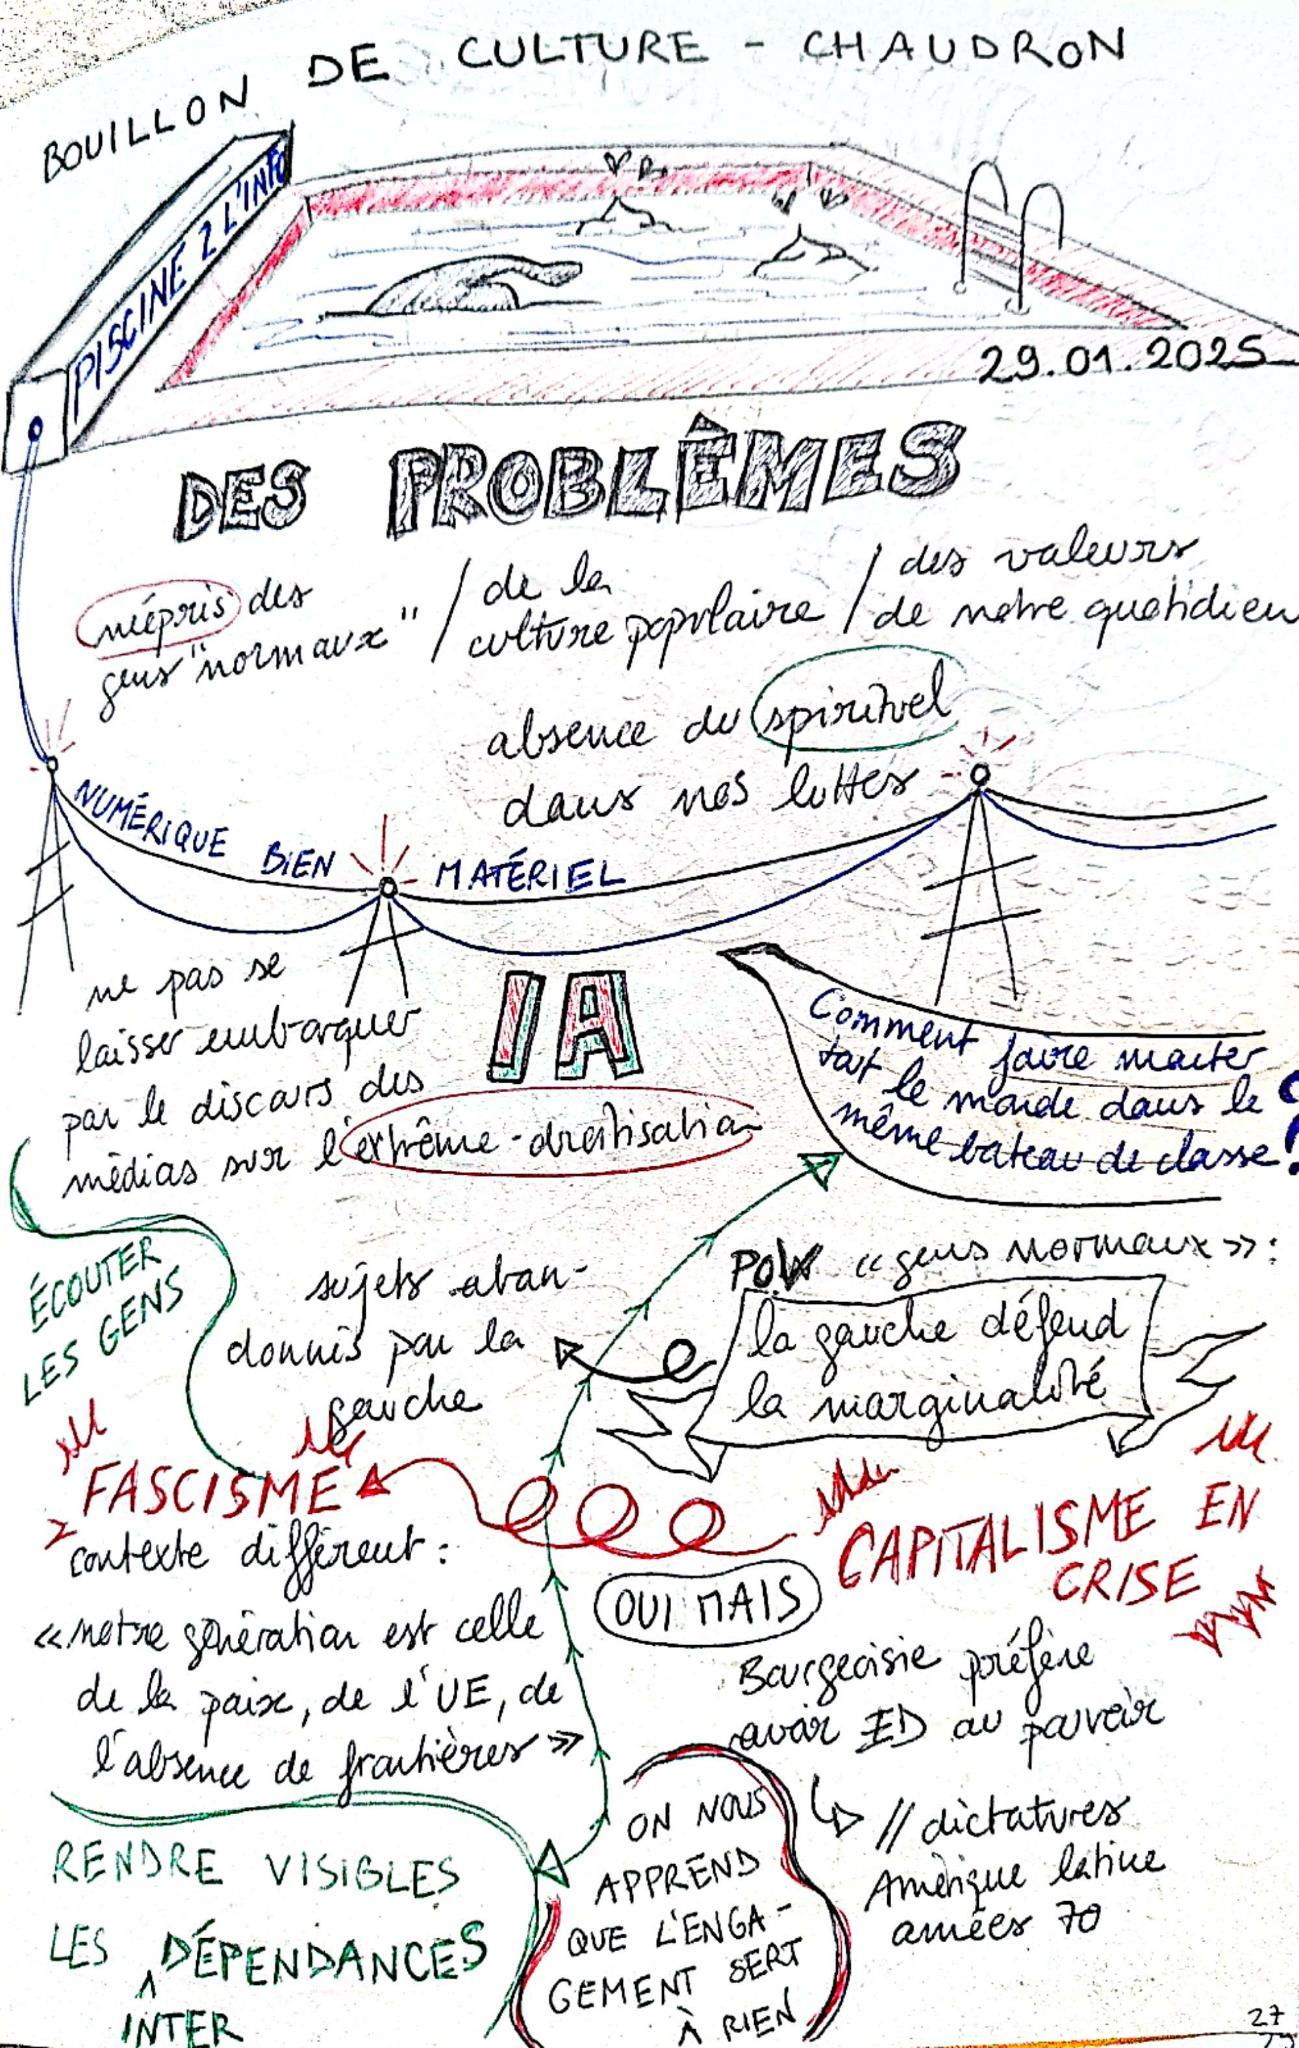 BOUILLON DE CULTURE - CHAUDRON
PISCINE 2 L'INFO
29.01.2025
DES PROBLÊMES
mépris des
gens "normaux"
/ de la
culture populaire
/ des valeurs
de notre quotidien
absence du spirituel
dans nos luttes
NUMÉRIQUE BIEN MATÉRIEL
ne pas se
laisser embarquer
par le discours des
médias sur l'extrême-droitisation
IA
Comment faire monter
tout le monde dans le
même bateau de classe ?
ÉCOUTER
LES GENS
sujets aban-
donnés par la
gauche
POUR « gens normaux » :
la gauche défend
la marginalité
FASCISME
CAPITALISME EN
CRISE
contexte différent :
« notre génération est celle
de la paix, de l'UE, de
l'absence de frontières »
OUI MAIS
Bourgeoisie préfère
avoir ED au pouvoir
// dictatures
Amérique latine
années 70
ON NOUS
APPREND
QUE L'ENGA-
GEMENT SERT
À RIEN
RENDRE VISIBLES
LES DÉPENDANCES
INTER
27